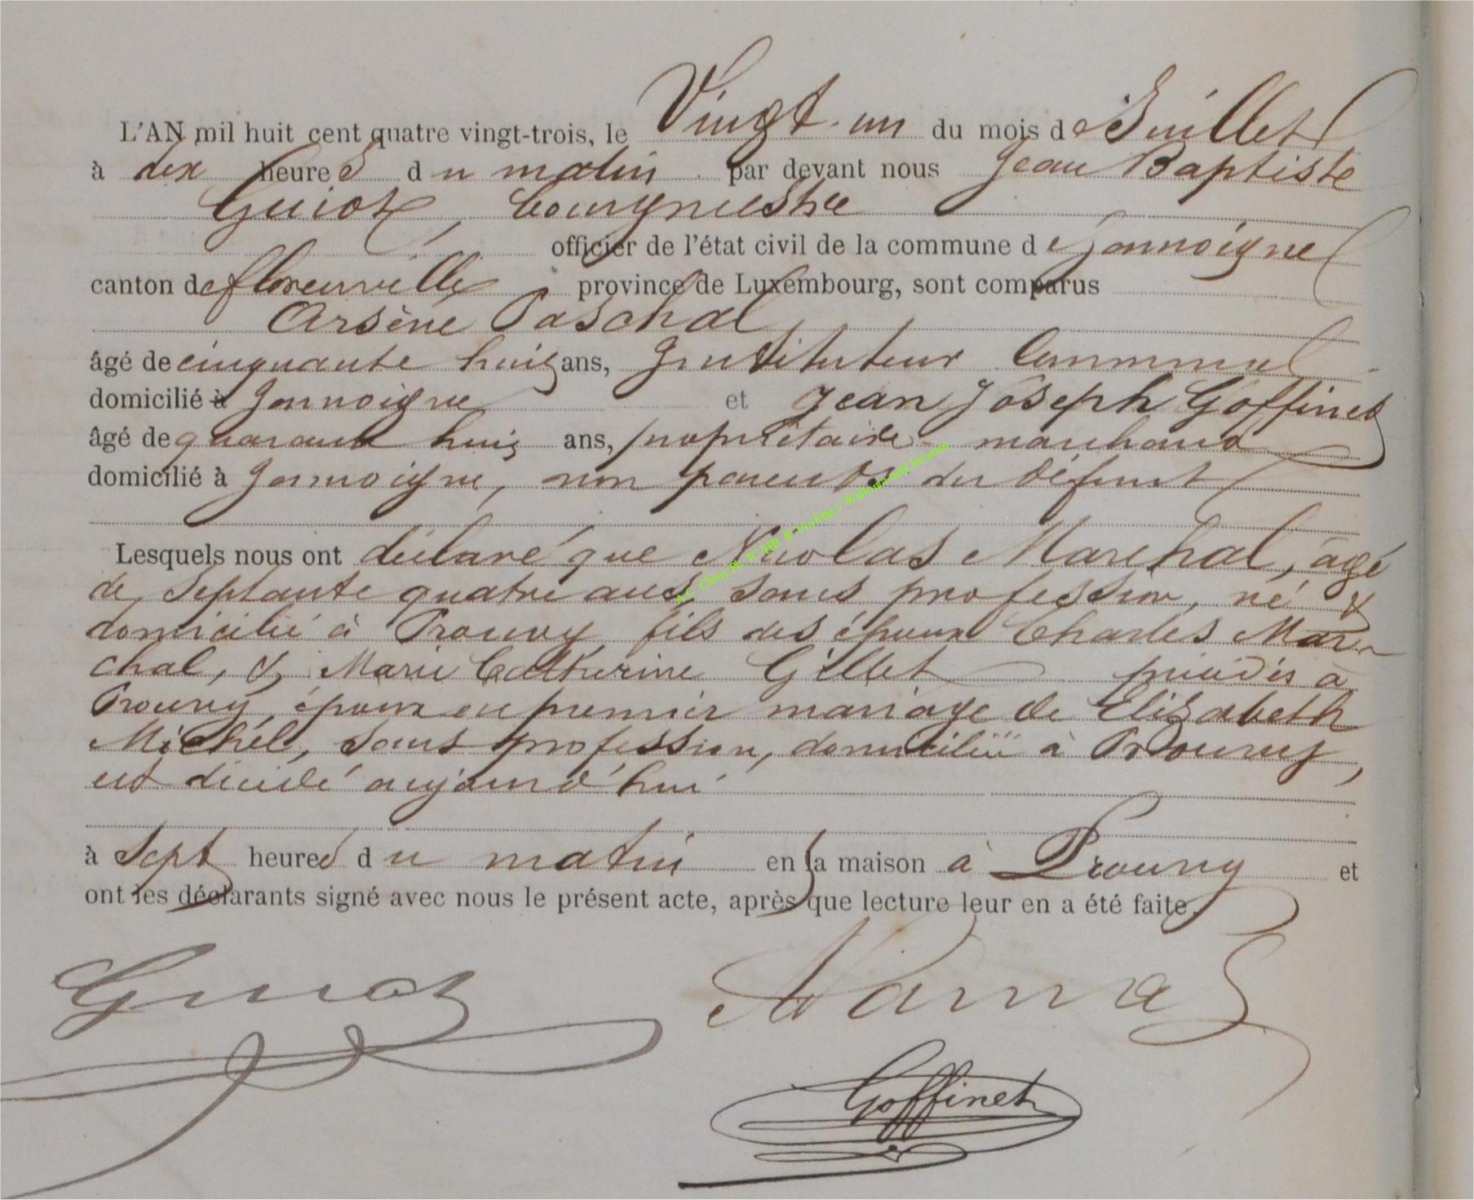 L'AN mil huit cent quatre vingt-trois, le Vingt-un du mois de Juillet
à dix heures du matin par devant nous Jean Baptiste
Guiot, bourgmestre
officier de l'état civil de la commune de Jamoigne
canton de florenville province de Luxembourg, sont comparus
Arsène Paschal
âgé de cinquante huit ans, Instituteur Communal
domicilié à Jamoigne et Jean Joseph Goffinet
âgé de quarante huit ans, propriétaire marchand
domicilié à Jamoigne, non parents du défunt
Lesquels nous ont déclaré que Nicolas Marchal, âgé
de septante quatre ans, sans profession, né &
domicilié à Prouvy fils des époux Charles Mar-
chal, & Marie Catherine Gillet décédés à
Prouvy, époux en premier mariage de Elisabeth
Michel, sans profession, domiciliée à Prouvy,
est décédé aujourd'hui
à sept heures du matin en sa maison à Prouvy et
ont les déclarants signé avec nous le présent acte, après que lecture leur en a été faite.
Guiot
Goffinet